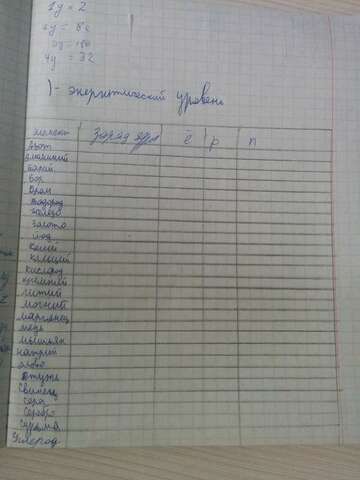 1у = 2
2у = 8е
3у = 18е
4у = 32
)- энергитический уровень
элемент заряд ядра ē p n
Азот
алюминий
Барий
Бор
Бром
Водород
железо
золото
йод
калий
кальций
кислород
кремний
литий
магний
марганец
медь
мышьяк
натрий
олово
ртуть
свинец
сера
серебро
сурьма
углерод